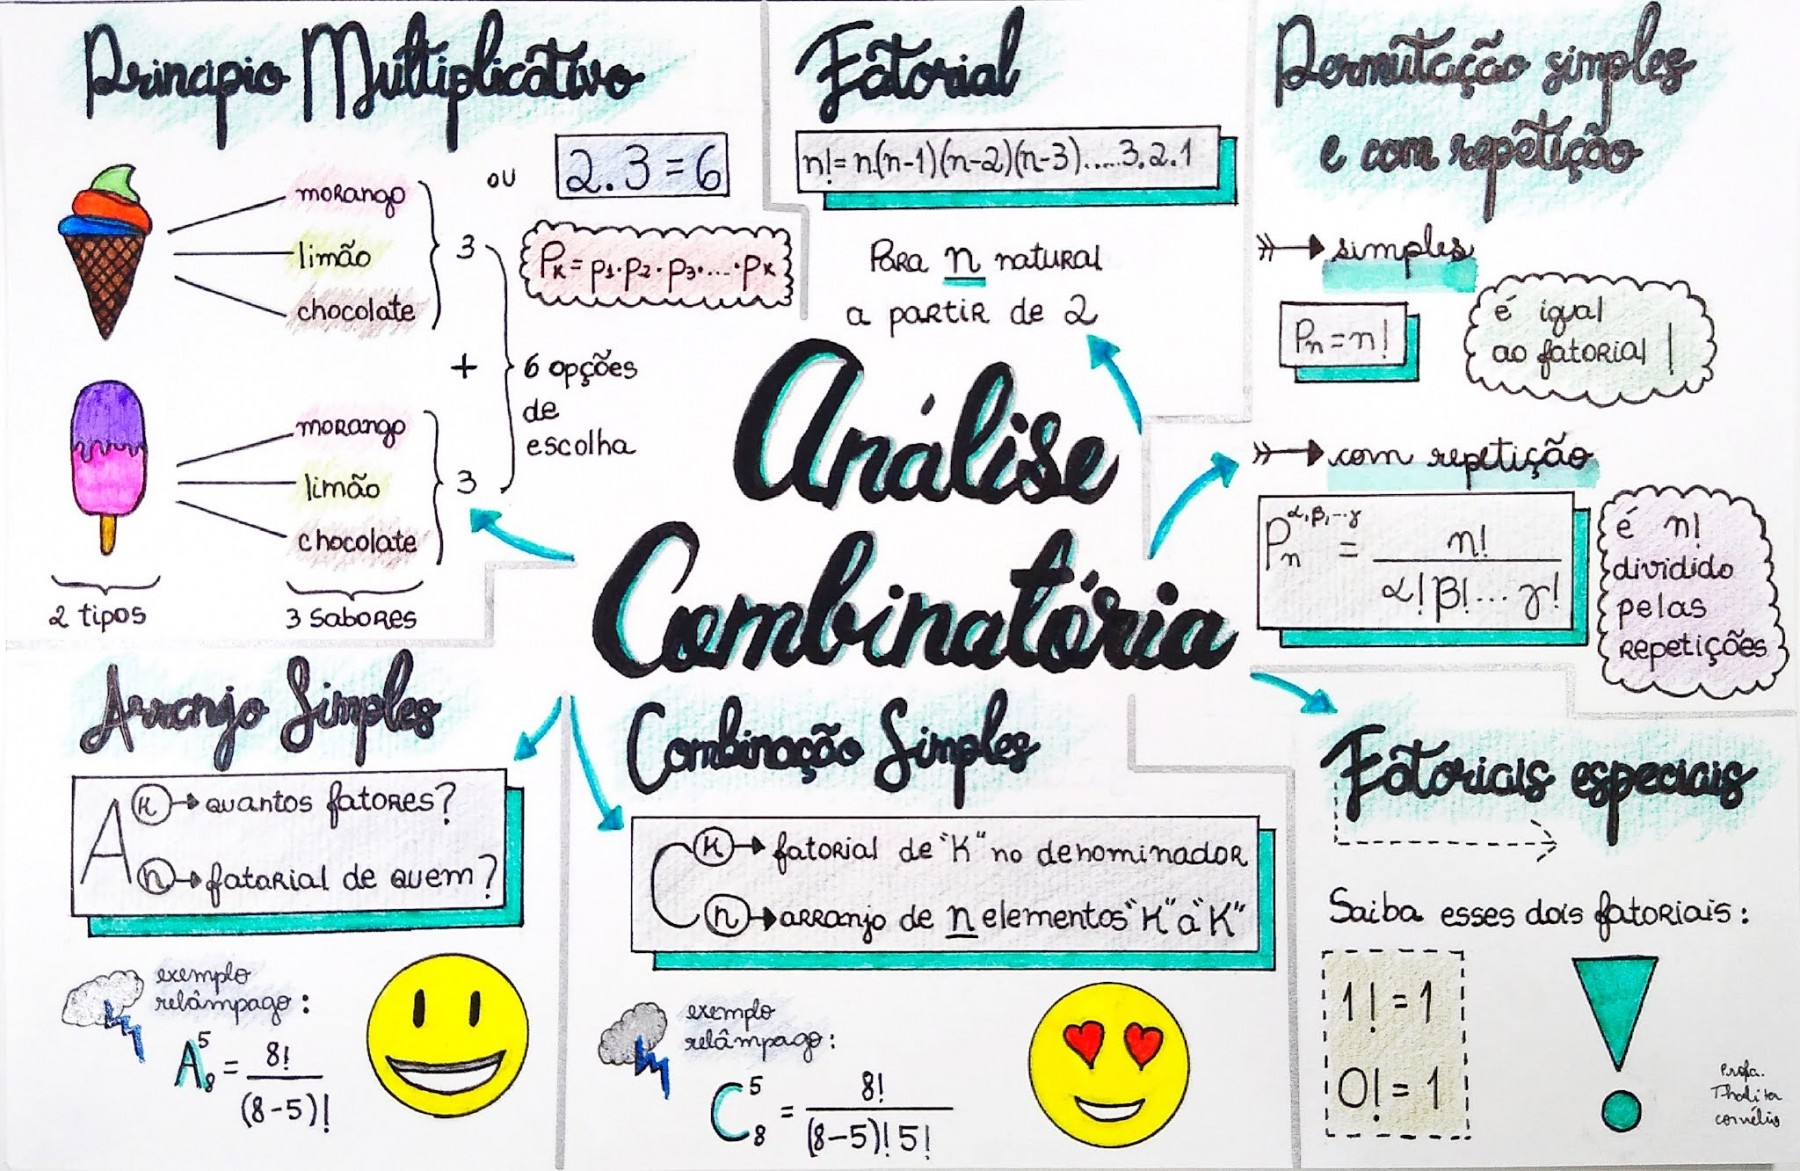 Princípio Multiplicativo
ou
2.3=6
morango
limão
chocolate
3
Pk=p1.p2.p3.....pk
+
6 opções
de
escolha
morango
limão
chocolate
3
2 tipos
3 sabores
Fatorial
n!=n.(n-1)(n-2)(n-3).....3.2.1
Para n natural
a partir de 2
Permutação simples
e com repetição
simples
Pn=n!
é igual
ao fatorial !
com repetição
Pn^α,β,...γ = n! / α!β!...γ!
é n!
dividido
pelas
repetições
Análise
Combinatória
Arranjo Simples
A
k quantos fatores?
n fatorial de quem?
exemplo
relâmpago:
A8^5 = 8! / (8-5)!
Combinação Simples
C
k fatorial de "K" no denominador
n arranjo de n elementos "K" a "K"
exemplo
relâmpago:
C8^5 = 8! / (8-5)!5!
Fatoriais especiais
Saiba esses dois fatoriais:
1!=1
0!=1
Profa.
Thalita
Cornélio